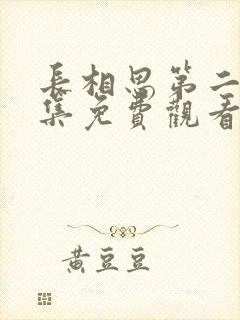 長相思第二
集免費觀看
黃豆豆